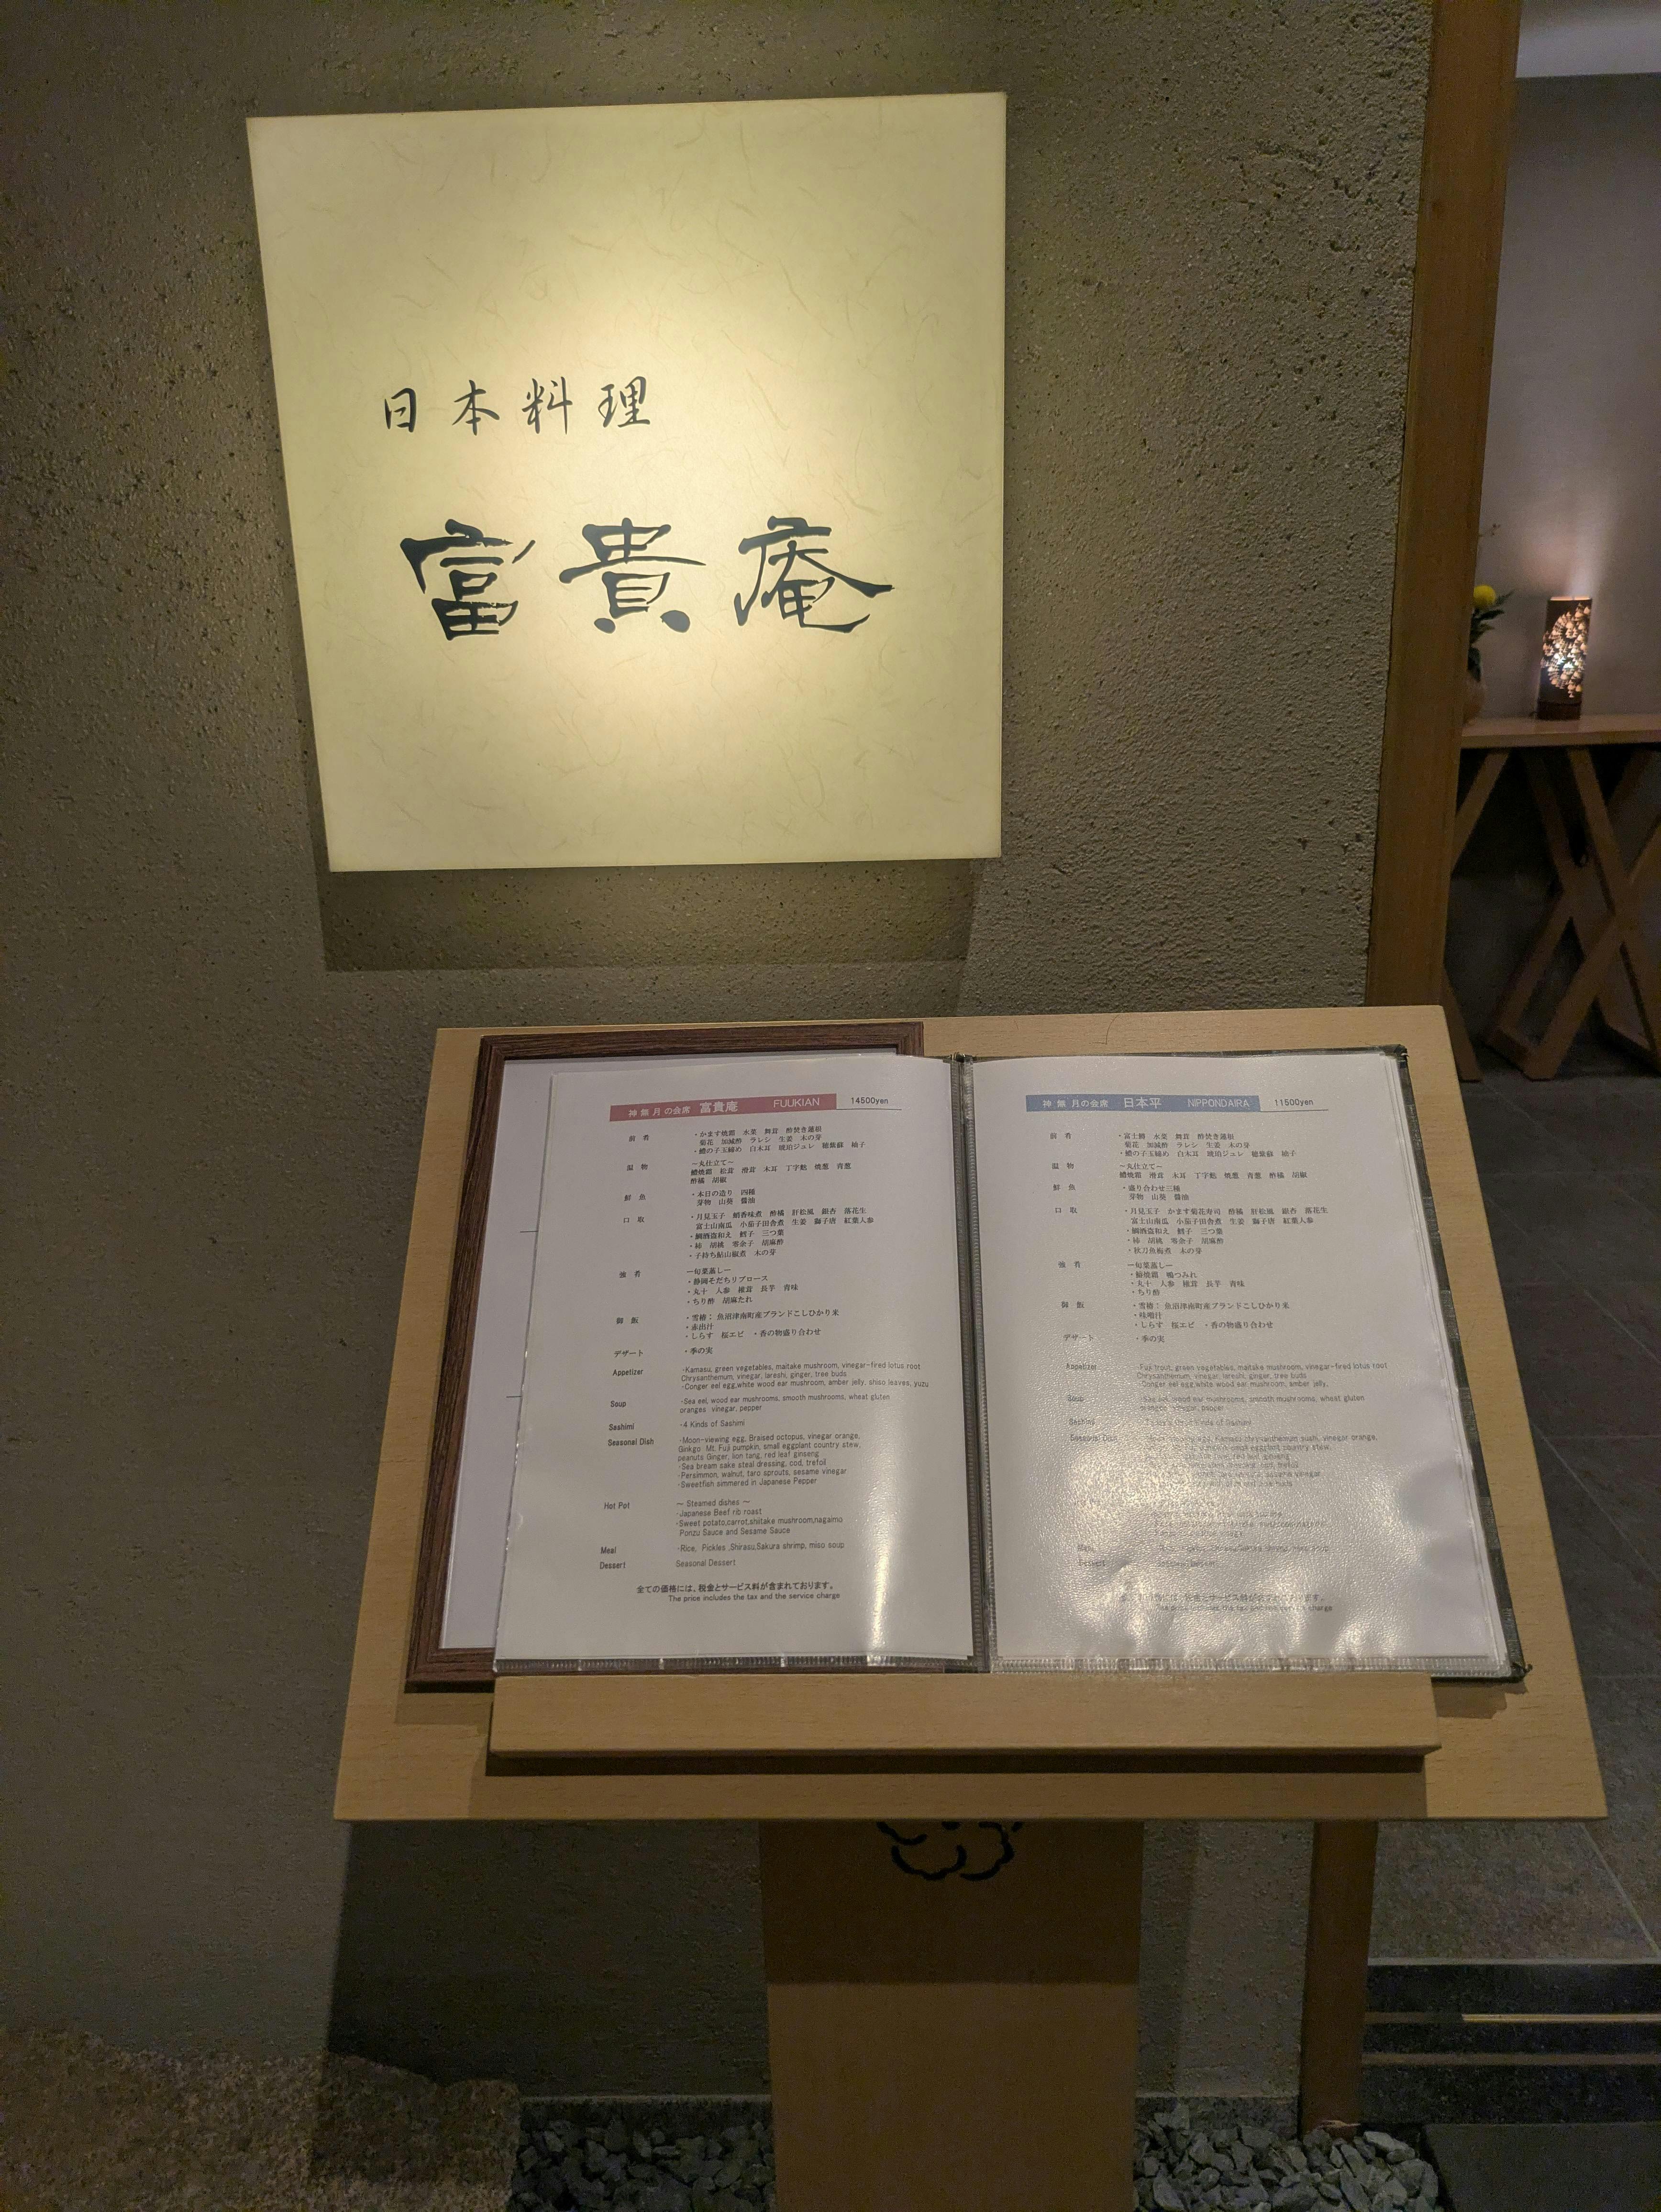 日本料理
富貴庵
神無月の会席 富貴庵 FUUKIAN 14500yen
前肴 ・かます焼霜 水菜 舞茸 酢焚き蓮根
菊花 加減酢 ラレシ 生姜 木の芽
・鱧の子玉締め 白木耳 琥珀ジュレ 穂紫蘇 柚子
温物 ～丸仕立て～
鱧焼霜 松茸 滑茸 木耳 丁字麩 焼葱 青葱
酢橘 胡椒
鮮魚 ・本日の造り 四種
芽物 山葵 醤油
口取 ・月見玉子 蛸香味煮 酢橘 肝松風 銀杏 落花生
富士山南瓜 小茄子田舎煮 生姜 獅子唐 紅葉人参
・鯛酒盗和え 鱈子 三つ葉
・柿 胡桃 零余子 胡麻酢
・子持ち鮎山椒煮 木の芽
強肴 ー旬菜蒸しー
・静岡そだちリブロース
・丸十 人参 椎茸 長芋 青味
・ちり酢 胡麻たれ
御飯 ・雪椿：魚沼津南町産ブランドこしひかり米
・赤出汁
・しらす 桜エビ ・香の物盛り合わせ
デザート ・季の実
Appetizer ・Kamasu, green vegetables, maitake mushroom, vinegar-fired lotus root
Chrysanthemum, vinegar, lareshi, ginger, tree buds
・Conger eel egg,white wood ear mushroom, amber jelly, shiso leaves, yuzu
Soup ・Sea eel, wood ear mushrooms, smooth mushrooms, wheat gluten
oranges vinegar, pepper
Sashimi ・4 Kinds of Sashimi
Seasonal Dish ・Moon-viewing egg, Braised octopus, vinegar orange,
Ginkgo Mt. Fuji pumpkin, small eggplant country stew,
peanuts Ginger, lion tang, red leaf ginseng
・Sea bream sake steal dressing, cod, trefoil
・Persimmon, walnut, taro sprouts, sesame vinegar
・Sweetfish simmered in Japanese Pepper
Hot Pot ～ Steamed dishes ～
・Japanese Beef rib roast
・Sweet potato,carrot,shiitake mushroom,nagaimo
Ponzu Sauce and Sesame Sauce
Meal ・Rice, Pickles ,Shirasu,Sakura shrimp, miso soup
Dessert Seasonal Dessert
全ての価格には、税金とサービス料が含まれております。
The price includes the tax and the service charge
神無月の会席 日本平 NIPPONDAIRA 11500yen
前肴 ・富士鱒 水菜 舞茸 酢焚き蓮根
菊花 加減酢 ラレシ 生姜 木の芽
・鱧の子玉締め 白木耳 琥珀ジュレ 穂紫蘇 柚子
温物 ～丸仕立て～
鱧焼霜 松茸 滑茸 木耳 丁字麩 焼葱 青葱 酢橘 胡椒
鮮魚 ・盛り合わせ三種
芽物 山葵 醤油
口取 ・月見玉子 かます菊花寿司 酢橘 肝松風 銀杏 落花生
富士山南瓜 小茄子田舎煮 生姜 獅子唐 紅葉人参
・鯛酒盗和え 鱈子 三つ葉
・柿 胡桃 零余子 胡麻酢
・秋刀魚梅煮 木の芽
強肴 ー旬菜蒸しー
・鰤焼霜 鴨つみれ
・丸十 人参 椎茸 長芋 青味
・ちり酢
御飯 ・雪椿：魚沼津南町産ブランドこしひかり米
・味噌汁
・しらす 桜エビ ・香の物盛り合わせ
デザート ・季の実
Appetizer ・Fuji trout, green vegetables, maitake mushroom, vinegar-fired lotus root
Chrysanthemum, vinegar, lareshi, ginger, tree buds
・Conger eel egg,white wood ear mushroom, amber jelly,
Soup ・Sea eel, wood ear mushrooms, smooth mushrooms, wheat gluten
vinegar, pepper
Sashimi Kinds of Sashimi
Seasonal Dish egg, Kamasu chrysanthemum sushi, vinegar orange,
pumpkin, small eggplant country stew,
red leaf ginseng
cod, trefoil
sesame vinegar
miso soup
The price includes the tax and the service charge